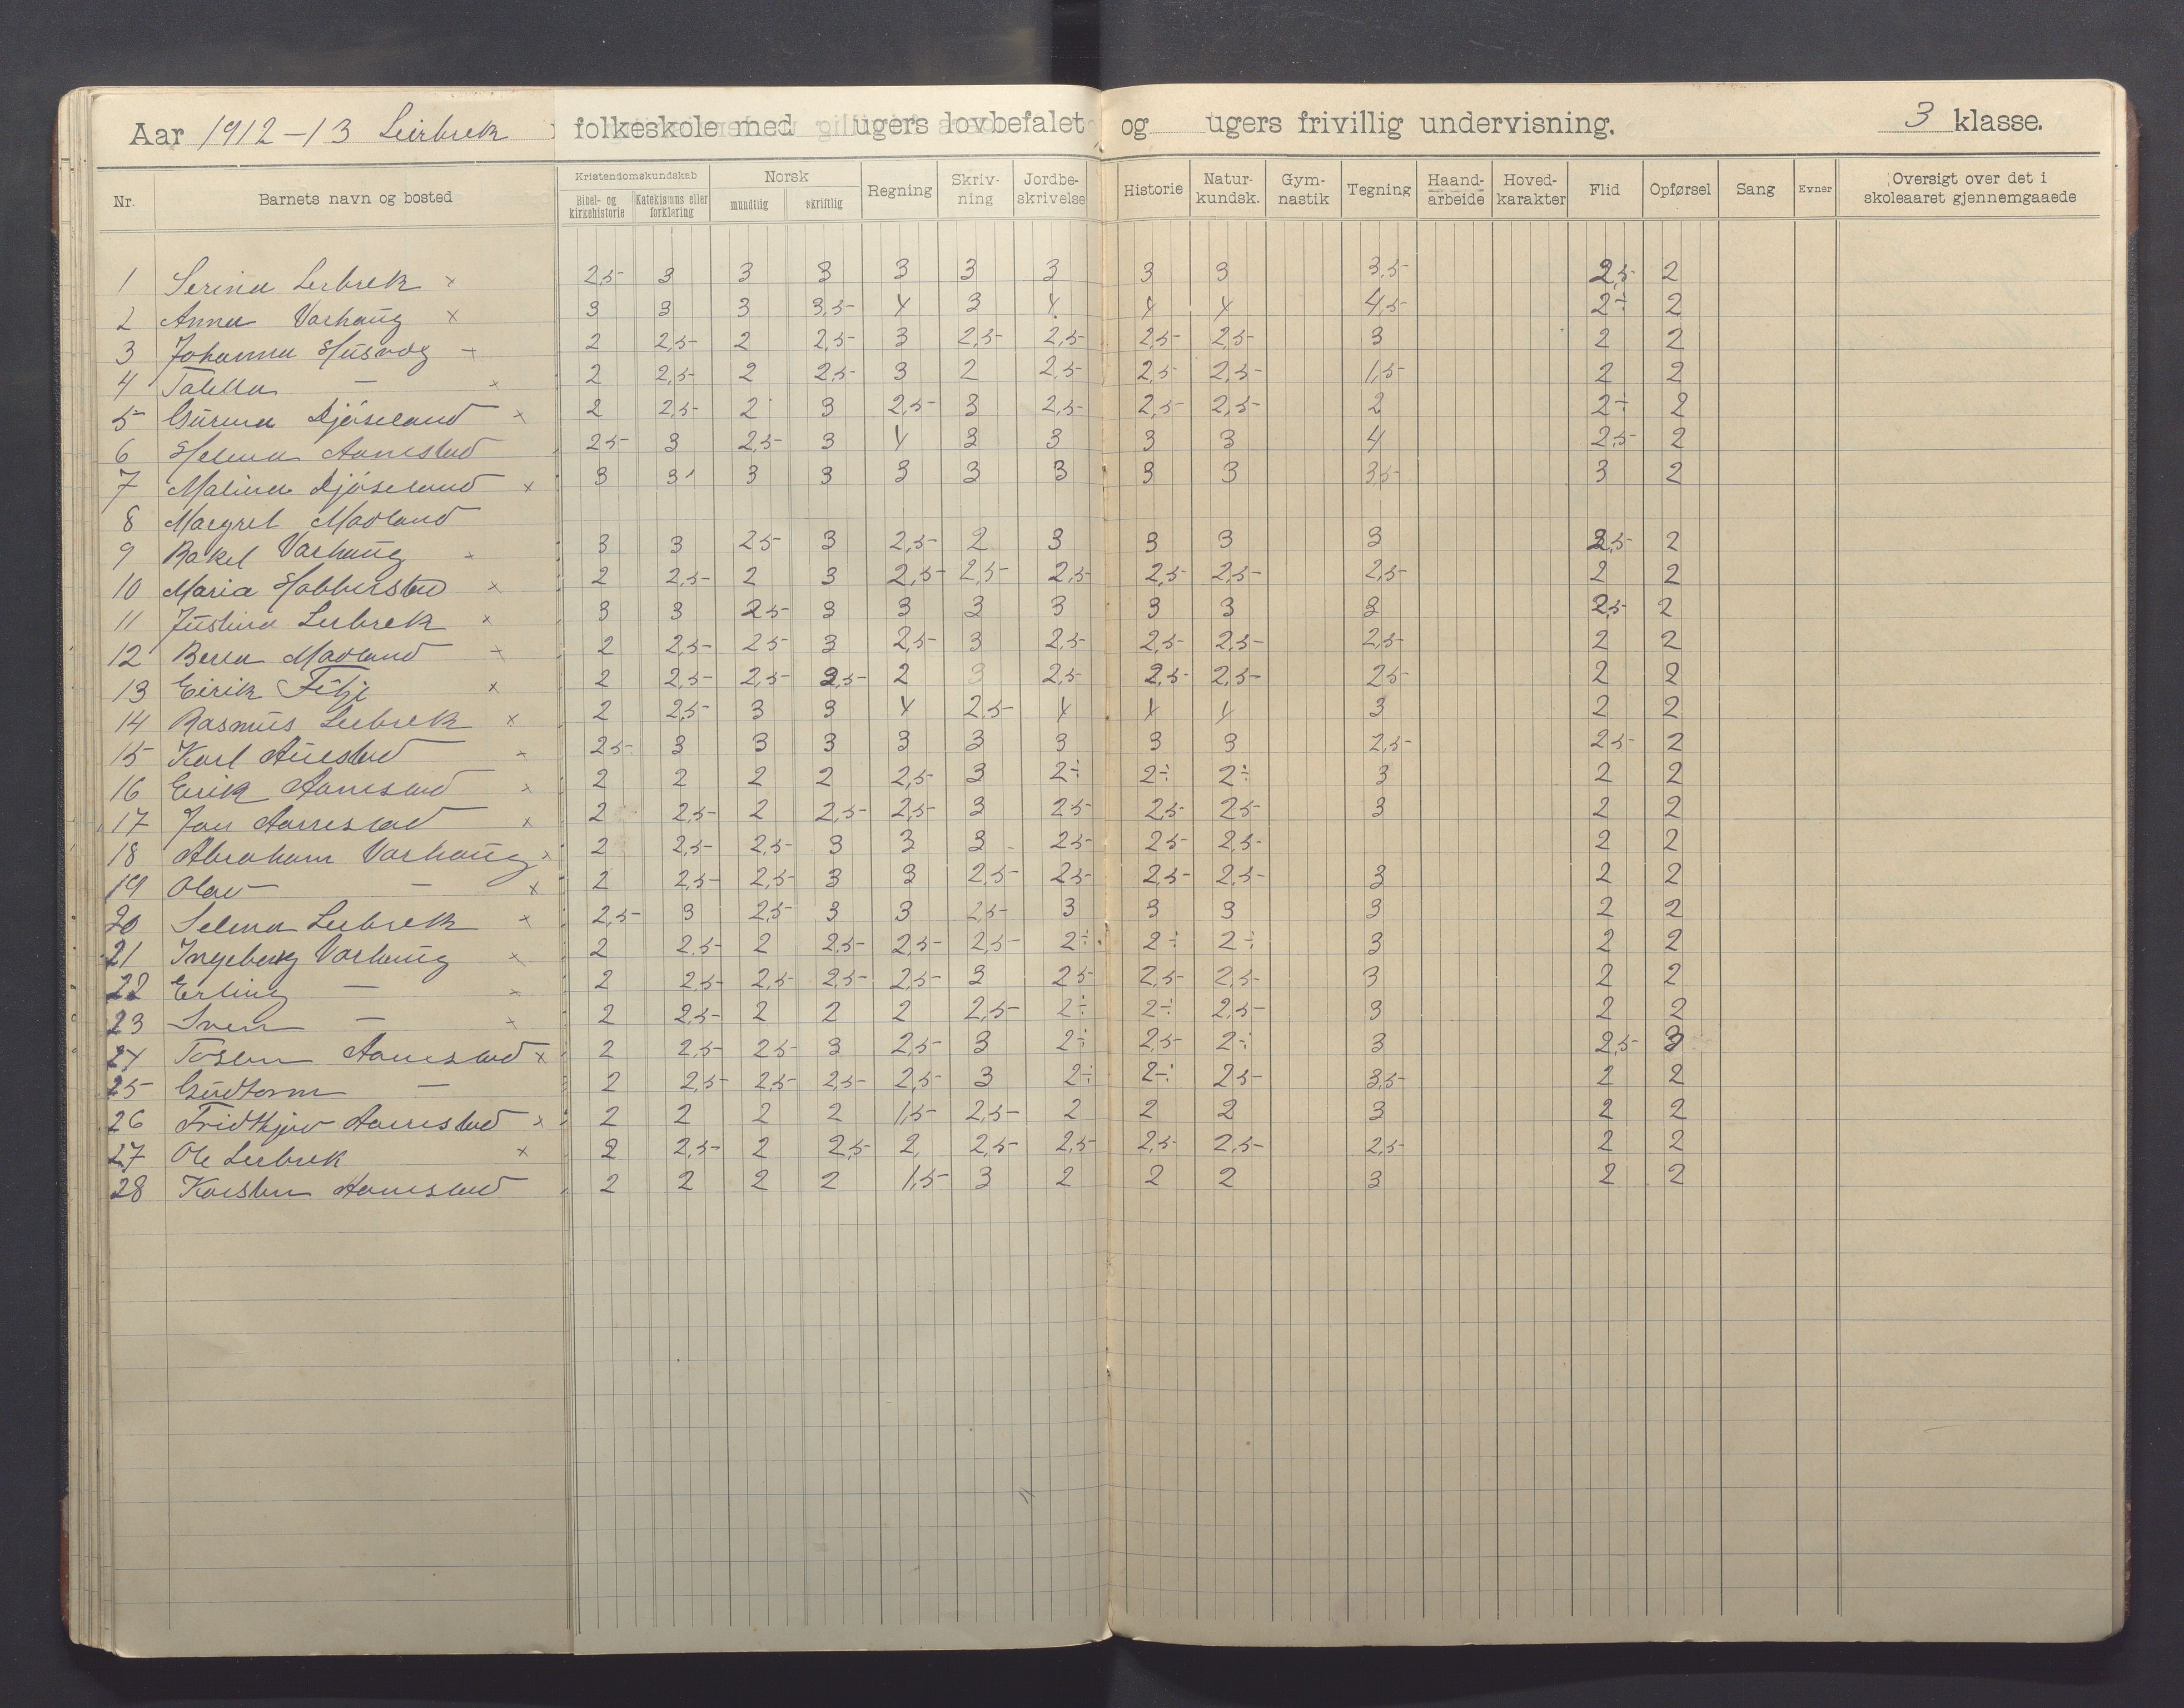 Aar 1912-13 Leirbrek folkeskole med ugers lovbefalet og ugers frivillig undervisning. 3 klasse.
Nr. Barnets navn og bosted Kristendomskundskab Bibel- og kirkehistorie Katekismus eller forklaring Norsk mundtlig skriftlig Regning Skriv-ning Jordbe-skrivelse Historie Natur-kundsk. Gym-nastik Tegning Haand-arbeide Hoved-karakter Flid Opførsel Sang Evner Oversigt over det i skoleaaret gjennemgaaede
1 Serina Lerbrek x 2,5 3 3 3 3 3 3 3 3 3,5 2,5 2
2 Anna Varhaug x 3 3 3 3,5 4 3 4 4 4 4,5 2÷ 2
3 Johanna Husvæg x 2 2,5 2 2,5 3 2,5 2,5 2,5 2,5 3 2 2
4 Taletta — x 2 2,5 2 2,5 3 2 2,5 2,5 2,5 1,5 2 2
5 Gurina Djøseland x 2 2,5 2 3 2,5 3 2,5 2,5 2,5 2 2÷ 2
6 Helena Aarrestad 2,5 3 2,5 3 4 3 3 3 3 4 2,5 2
7 Malina Djøseland x 3 3 3 3 3 3 3 3 3 3,5 3 2
8 Margret Madland
9 Rakel Varhaug x 3 3 2,5 3 2,5 2 3 3 3 3 2,5 2
10 Maria Hobberstad x 2 2,5 2 3 2,5 2,5 2,5 2,5 2,5 2,5 2 2
11 Justina Lerbrek x 3 3 2,5 3 3 3 3 3 3 3 2,5 2
12 Berta Madland x 2 2,5 2,5 3 2,5 3 2,5 2,5 2,5 2,5 2 2
13 Eirik Fitje x 2 2,5 2,5 2,5 2 3 2,5 2,5 2,5 2,5 2 2
14 Rasmus Lerbrek x 2 2,5 3 3 4 2,5 4 4 4 3 2 2
15 Karl Auestad x 2,5 3 3 3 3 3 3 3 3 2,5 2,5 2
16 Eirik Aarrestad x 2 2 2 2 2,5 3 2÷ 2÷ 2÷ 3 2 2
17 Jon Aarrestad x 2 2,5 2 2,5 2,5 3 2,5 2,5 2,5 3 2 2
18 Abraham Varhaug x 2 2,5 2,5 3 3 3 2,5 2,5 2,5 2 2
19 Olav — x 2 2,5 2,5 3 3 2,5 2,5 2,5 2,5 3 2 2
20 Selma Lerbrek x 2,5 3 2,5 3 3 2,5 3 3 3 3 2 2
21 Ingeborg Varhaug x 2 2,5 2 2,5 2,5 2,5 2÷ 2÷ 2÷ 3 2 2
22 Erling — x 2 2,5 2,5 2,5 2,5 3 2,5 2,5 2,5 3 2 2
23 Sven — x 2 2,5 2 2 2 2,5 2÷ 2÷ 2,5 3 2 2
24 Aarrestad x 2 2,5 2,5 3 2,5 3 2÷ 2,5 2÷ 3 2,5 3
25 Gudtorm — 2 2,5 2,5 2,5 2,5 3 2÷ 2÷ 2,5 3,5 2 2
26 Fridthjov Aarrestad x 2 2 2 2 1,5 2,5 2 2 2 3 2 2
27 Ole Lerbrek x 2 2,5 2 2,5 2 2,5 2,5 2,5 2,5 2,5 2 2
28 Karsten Aarrestad 2 2 2 2 1,5 3 2 2 2 3 2 2